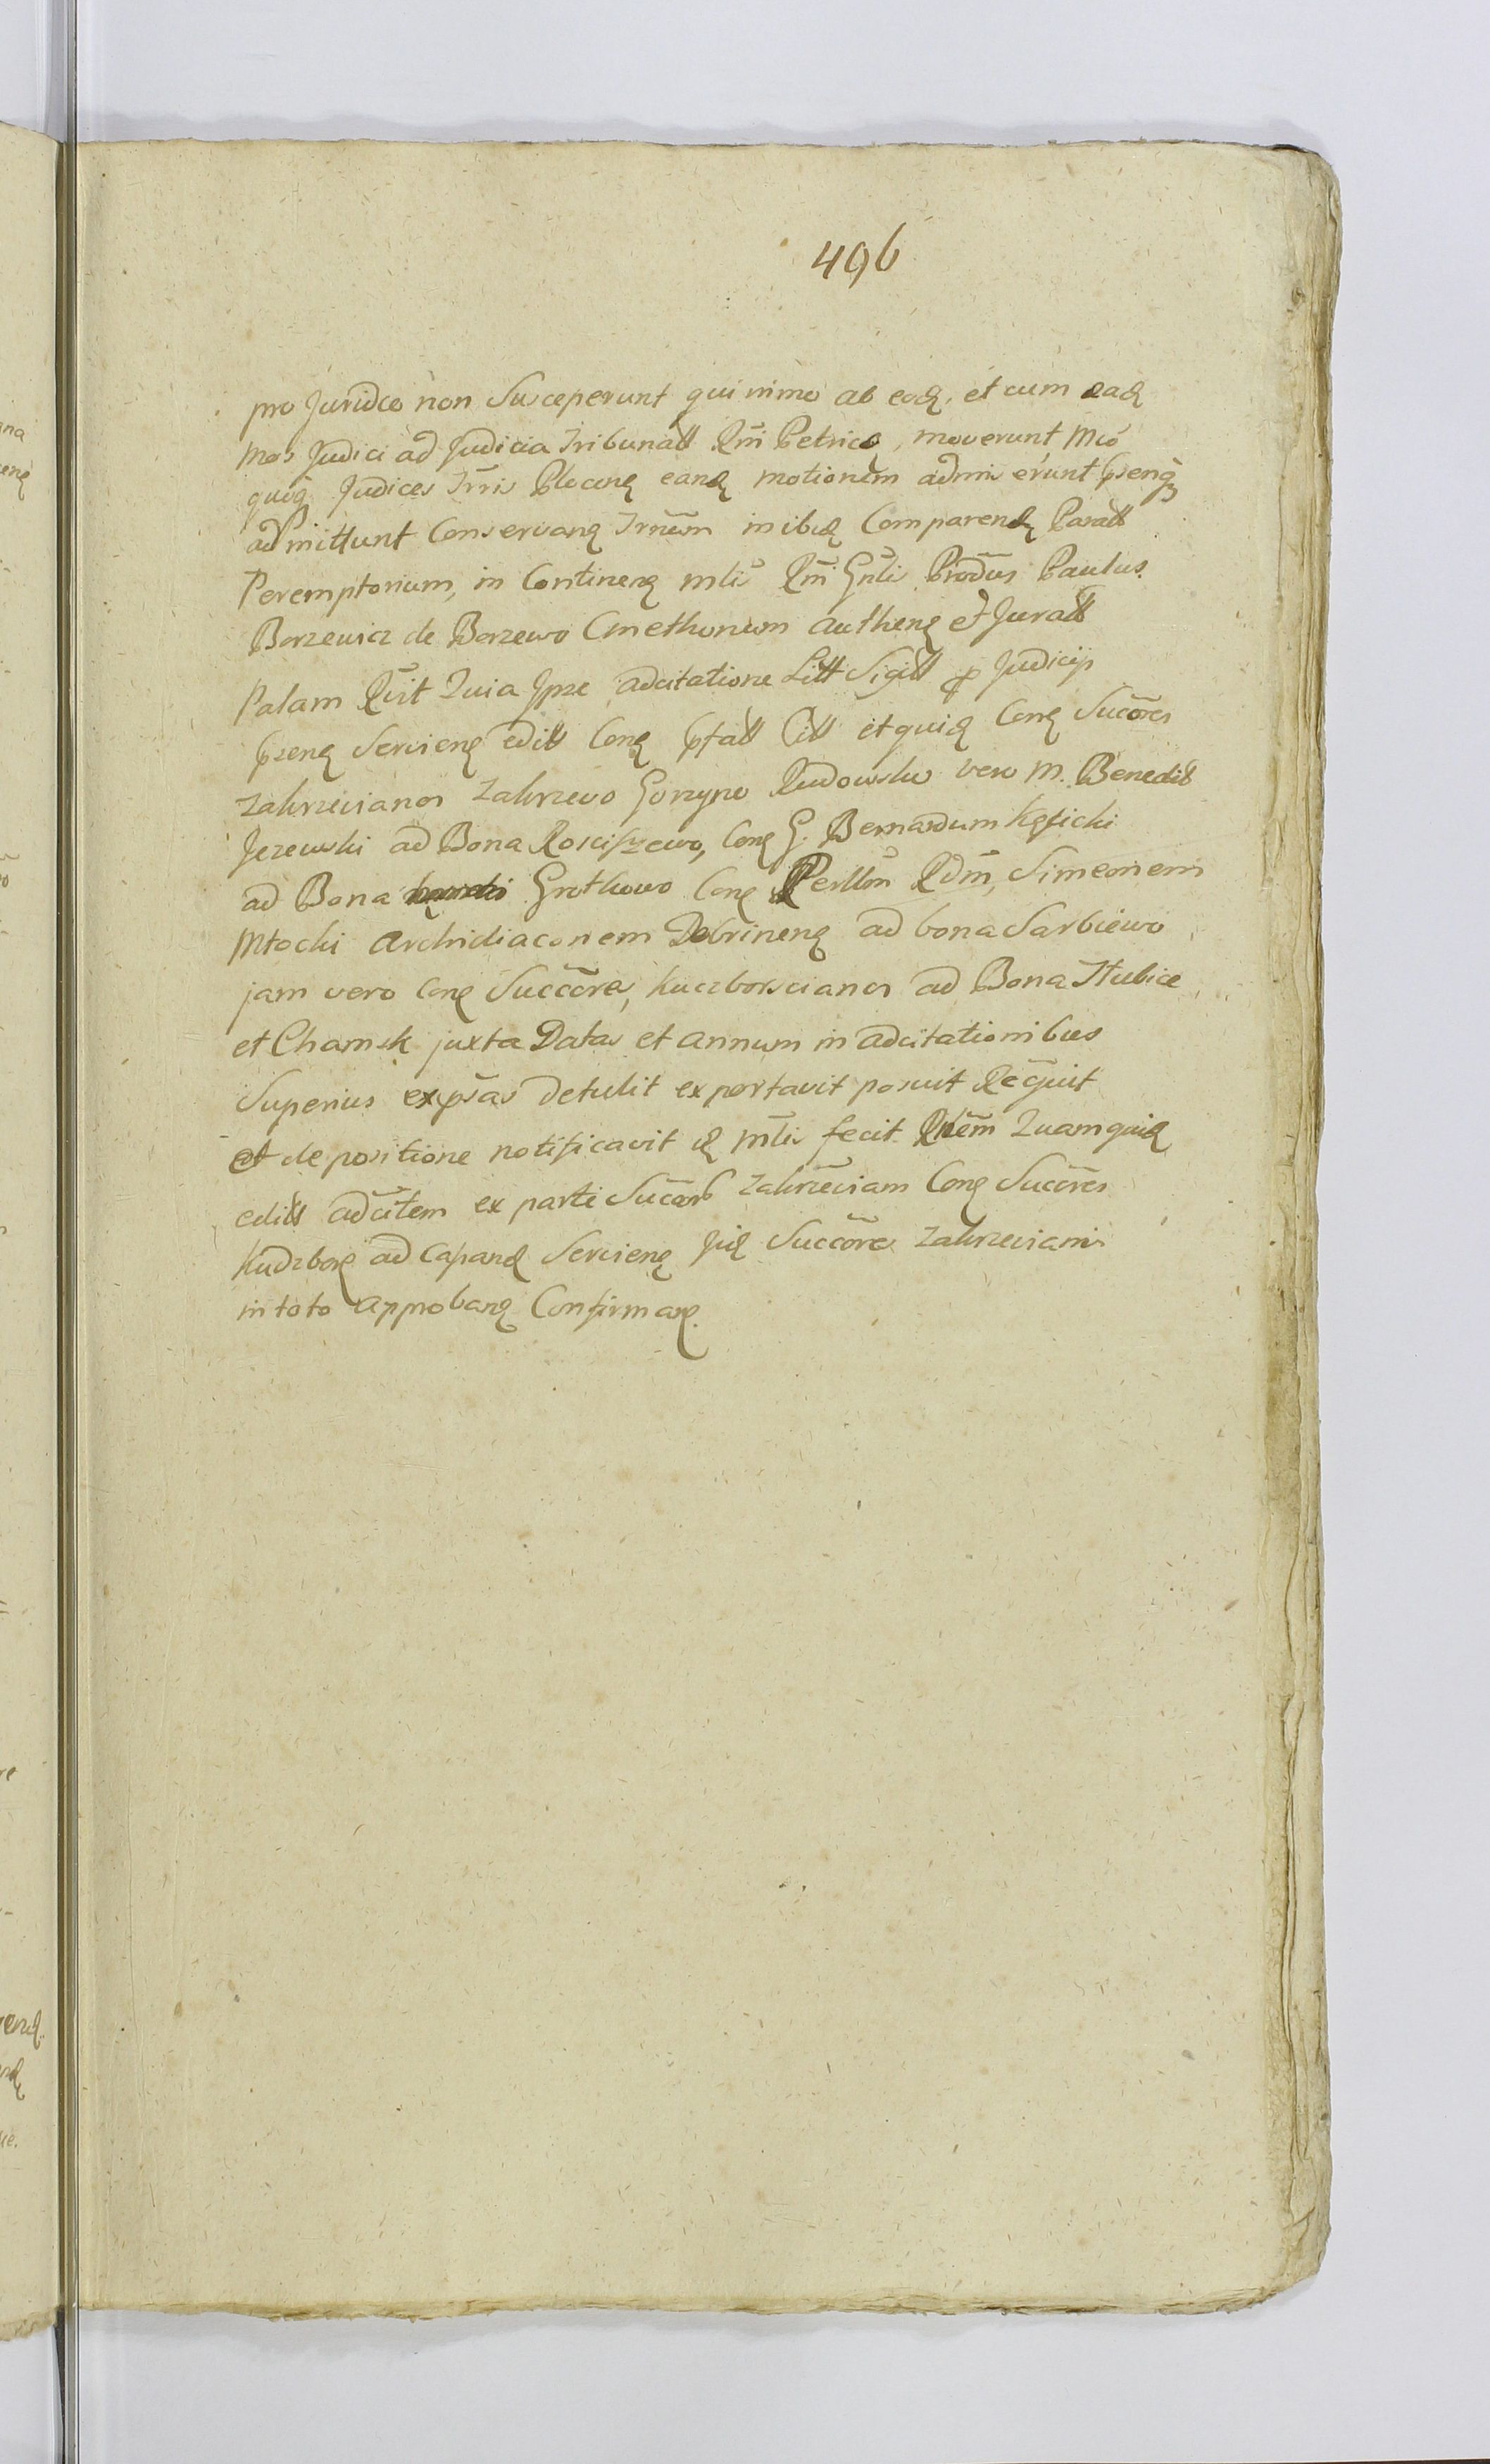 496
pro Juridco non Susceperunt qui nimo ab eodȩ, et cum eadȩ
Mos Judici ad Judicia Tribunall Rni Petricȩ, moverunt Mcó
quoqȩ Judices Trris Plocenȩ eandȩ motionem admi erunt pseng
admittunt Conservanȩ Trnūm in ibiȩ Comparendȩ Parall
Peremptorium, in Continenȩ mlis Rni Gnlis Prōdus Paulus
Borzewicz de Borzewo Cmethonum authenȩ et Jurall
Palam Rūit Quia Ipse adcitatione Litt Sigill ꝑ Judicijs
psenȩ Servienȩ edill Conȩ pfall Citt et quiȩ Conȩ Sucōres
Zakrzevianos Zakrzevo Gorzyno Rudowsko vero M. Benedit
Jezewski ad Bona Rosciszewo, Conȩ G. Bernardum Kęsicki
ad Bona Grotkowo Conȩ Perllm Rdm, Simeonem
Młocki Archidiaconem Dobrinenȩ ad bona Sarbiewo
jam vero Conȩ Succōres, Kuczborscianos ad Bona Hubice
et Chamsk juxta Datas et annum in adcitationibus
Superius expsas detulit exportavit posuit Reqūit
et de positione notificavit iȩ mlis fecit Rnēm Quamquiȩ
edill adcitem ex parti Sucorb Zakrzeviam Conȩ Sucōres
Kudzborȩ ad Capandȩ Servienȩ Jiȩ Succōres Zakrzeviani
in toto approbanȩ Confirmarȩ.